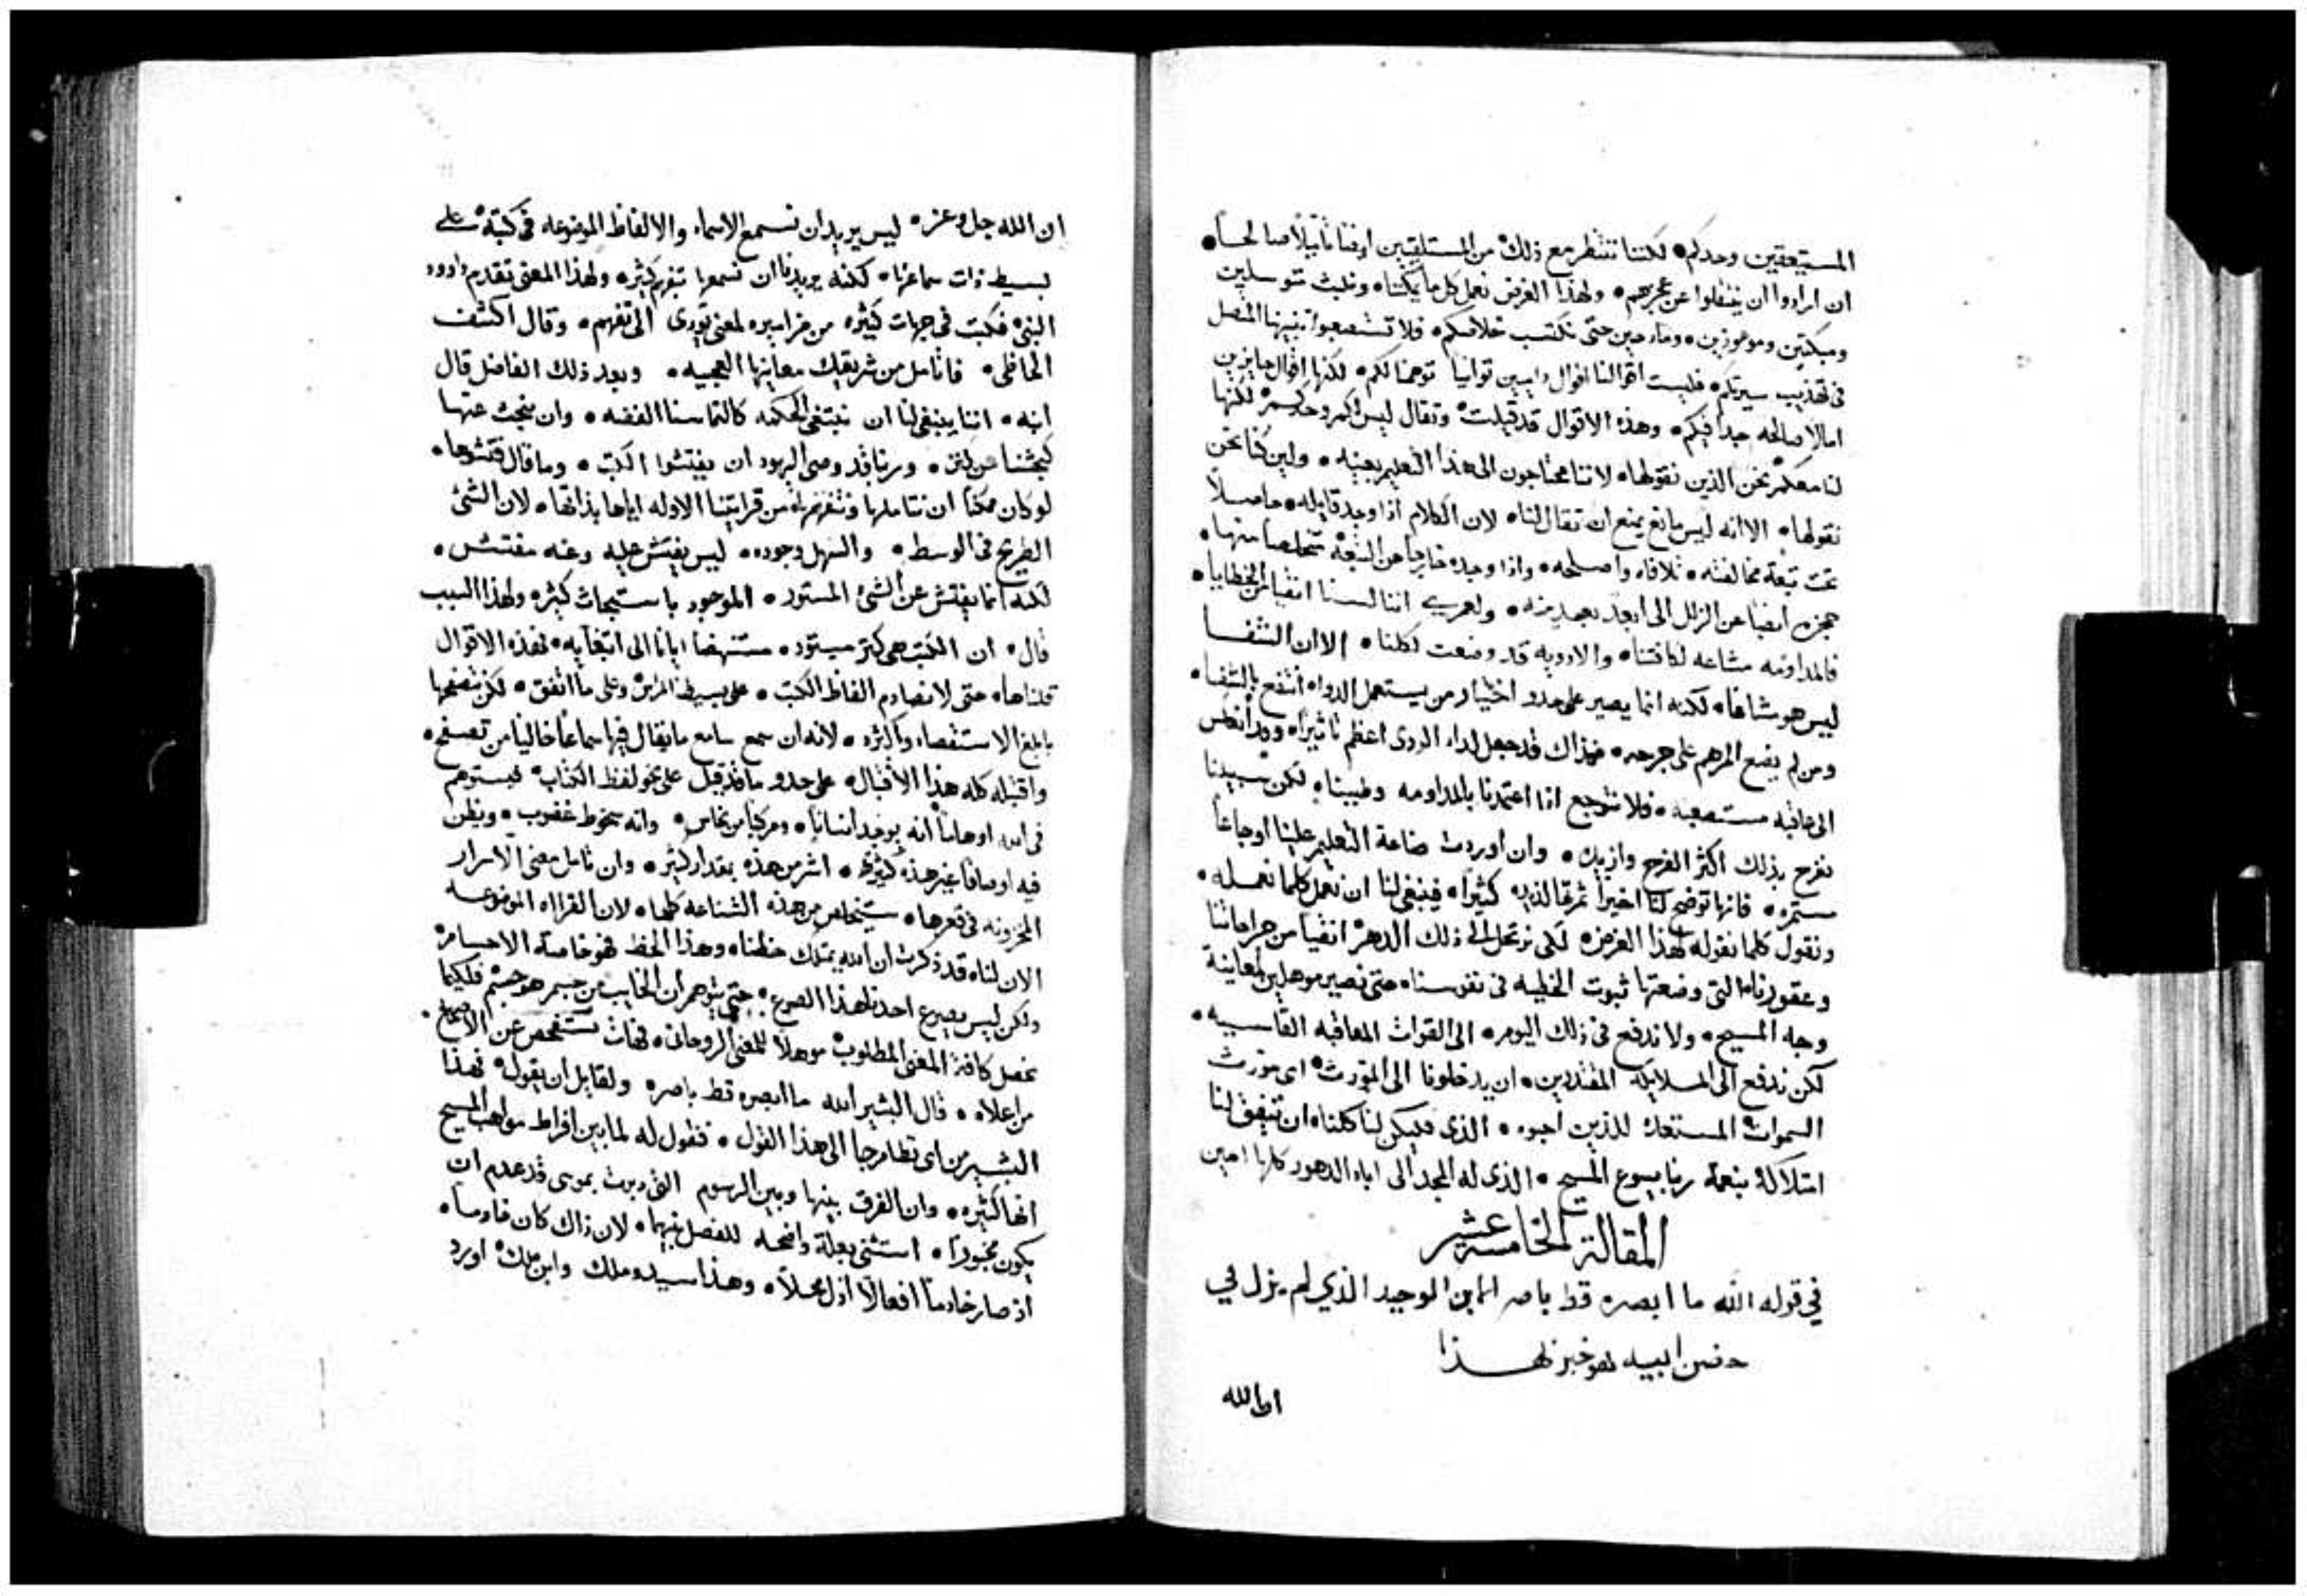 المستيعقين وحدكم لكننا ننتظر مع ذلك من المستلقيين ايضا صالحا
ان ارادوا ان يغفلوا عن عجزهم ولهذا الغرض نعمل كل ما يمكننا ونلبث متوسلين
ومبكتين وموعوزين ومادحين حتى نكتسب خلاصكم فلا تستصعبوا تنبيهنا المتصل
في تهذيب سيرتكم فليست اقوالنا اقوال توانيا توهمنا لكم لكنها اقوال حايزين
امالا صالحه جدا فيكم وهذه الاقوال قد قيلت وتقال ليس لكم وحدكم لكنها
لنا معكم نحن الذين نقولها لاننا محتاجون الى هذا التعليم بعينه ولين كنا نحن
نقولها الا انه ليس مانع يمنع ان تقال لنا لان الكلام اذا وجد قايله حاصلا
تحت تبعة مخالفته تلافاه واصلحه واذا وجده خارجا من التبعة متخلصا منها
حجزه ايضا عن الزلل الى ابعد بعيد منه ولعمري اننا لسنا انقيا من الخطايا
فالمداومه مشاعه لكافتنا والادويه قد وضعت لكلنا الا ان الشفا
ليس هو مشاعا لكنه انما يصير على حدو اختيار من يستعمل الدواه انتفع بالشفا
ومن لم يضع المرهم على جرحه فهذاك قد جعل لداء الردى اعظم تاثيرا وورا
الى عاقبه مستصعبه فلا نتوجع اذا اعتمدنا بالمداومه وطبينا لكن سبيلنا
نفرح بذلك اكثر الفرح وازيده وان اوردت صناعة التعليم علينا اوجاعا
مستمره فانها توضح لنا اخيرا ثمرتها لذيذه كثيرا فينبغي لنا ان نعمل كلما نعمله
ونقول كلما نقوله لهذا الغرض لكى نرتحل الى ذلك الدهر انقيا من جراحاتنا
وعقورنا التى وضعتها ثبوت الخطيه فى نفوسنا حتى نصير موهلين لمعاينة
وجه المسيح ولا ندفع فى ذلك اليوم الى القوات المعاقبه القاسيه
لكن ندفع الى الملايكه المقتدرين ان يدخلونا الى المورث اى مورث
السموات المستعد للذين احبوه الذى فليكن لنا كلنا ان تتفق لنا
امتلاكه بنعمة ربنا يسوع المسيح الذى له المجد الى اباد الدهور كلها امين
المقالة الخامسة عشر
في قوله الله ما ابصره قط باصر الابن الوحيد الذي لم يزل في
حضن ابيه هو خبر لهذا
اما الله
ان الله جل وعز ليس يريد ان نسمع الاسماء والالفاظ الموضوعه فى كتبه على
بسيط ذات سماعنا لكنه يريدنا ان نسمعها بتفهم كثيره ولهذا المعنى تقدم داوود
النبي فكتب فى جهات كثيره من مزاميره لمعنى يودى الى تفهم وقال اكشف
الحاظى فاتامل من شريعتك معانيها العجيبه وبعد ذلك الفاضل قال
ابنه اننا ينبغى لنا ان نبتغى الحكمه كالتماسنا الفضه وان نبحث عنها
كبحثنا عن كنز وربنا قد وصى اليهود ان يفتشوا الكتب وما قال فتشوها
لو كان ممكنا ان نتاملها ونتفهمها من قرايتنا الاوله اياها بذاتها لان الشئ
الطريح فى الوسط والسهل وجوده ليس يفتش عليه وعنه مفتش
لكنه انما يفتش عن الشئ المستور الموجود باستبحاث كثيره ولهذا السبب
قال ان الكتب هى كنز مستور مستنهضا ايانا الى ابتغايه فهذه الاقوال
قلناها حتى لا نصادم الفاظ الكتب على بسيط وعلى ما اتفق لكن نتصفحها
بابلغ الاستقصاء واكثره لانه ان سمع سامع ما يقال فيها سماعا خاليا من تصفح
واقتبله كله هذا الاقتبال على حدو ما قد قيل على نحو لفظ الكتاب فيستوهم
فى الله اوهاما انه يوجد انسانا ومركبا من نحاس وانه سخوط غضوب ويظن
فيه اوصافا غير هذه كثيره اشر من هذه بمقدار كثير وان تامل معنى الاسرار
المخزونه فى قعرها سيتخلص من هذه الشناعه كلها لان القراه الموضوعه
الان لنا قد ذكرت ان الله يمتلك حضنا وهذا الحظ فهو خاصة الاجسام
ولكن ليس يصرع احدنا هذا الصرع حتى يتوهم ان الخايب من جسم هو جسم فلكيما
نحصل كافة المعنى المطلوب موهلا للمعنى الروحانى فهات نستفحص عن
من اعلاه قال البشير الله ما ابصره قط باصره ولقايل ان يقول فهذا
البشير من اى نظام جا الى هذا القول فنقول له لما بين افراط مواهب المسيح
انها كثيره وان الفرق بينها وبين الرسوم التى دبرت بموسى قد عدم ان
يكون محبورا استثنى بعلة واضحه للفصل بينهما لان ذاك كان خادما
اذ صار خادما افعالا اذل محلا وهذا سيد وملك وابن ملك اورد